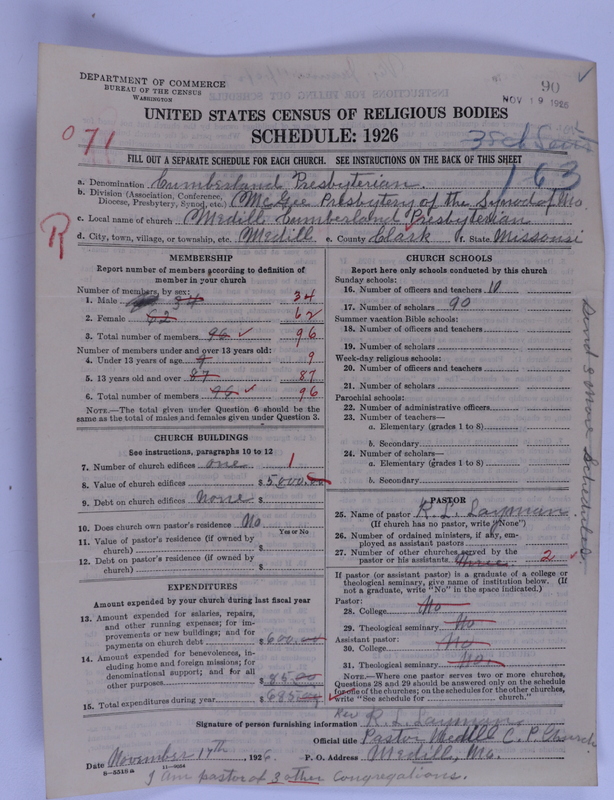 DEPARTMENT OF COMMERCE
BUREAU OF THE CENSUS
WASHINGTON
90
NOV 19 1926
UNITED STATES CENSUS OF RELIGIOUS BODIES
SCHEDULE: 1926
071
163
FILL OUT A SEPARATE SCHEDULE FOR EACH CHURCH. SEE INSTRUCTIONS ON THE BACK OF THIS SHEET
R
a. Denomination Cumberland Presbyterian
b. Division (Association, Conference, Diocese, Presbytery, Synod, etc.) McGee Presbytery of the Synod of Mo.
c. Local name of church Medill Cumberland Presbyterian
d. City, town, village, or township, etc. Medill e. County Clark f. State Missouri
MEMBERSHIP
Report number of members according to definition of member in your church
Number of members, by sex:
1. Male 34 34
2. Female 62 62
3. Total number of members 96 96
Number of members under and over 13 years old:
4. Under 13 years of age 9 9
5. 13 years old and over 87 87
6. Total number of members 96 96
NOTE.—The total given under Question 6 should be the same as the total of males and females given under Question 3.
CHURCH BUILDINGS
See instructions, paragraphs 10 to 12
7. Number of church edifices one 1
8. Value of church edifices $5,000.00
9. Debt on church edifices None $
10. Does church own pastor's residence No
Yes or No
11. Value of pastor's residence (if owned by church) $
12. Debt on pastor's residence (if owned by church) $
EXPENDITURES
Amount expended by your church during last fiscal year
13. Amount expended for salaries, repairs, and other running expenses; for improvements or new buildings; and for payments on church debt $600.00
14. Amount expended for benevolences, including home and foreign missions; for denominational support; and for all other purposes $85.00
15. Total expenditures during year $685.00
CHURCH SCHOOLS
Report here only schools conducted by this church
Sunday schools:
16. Number of officers and teachers 10
17. Number of scholars 90
Summer vacation Bible schools:
18. Number of officers and teachers
19. Number of scholars
Week-day religious schools:
20. Number of officers and teachers
21. Number of scholars
Parochial schools:
22. Number of administrative officers
23. Number of teachers—
a. Elementary (grades 1 to 8)
b. Secondary
24. Number of scholars—
a. Elementary (grades 1 to 8)
b. Secondary
Send 3 more schedules
PASTOR
25. Name of pastor R. L. Layman
(If church has no pastor, write "None")
26. Number of ordained ministers, if any, employed as assistant pastors
27. Number of other churches served by the pastor or his assistants three 2
If pastor (or assistant pastor) is a graduate of a college or theological seminary, give name of institution below. (If not a graduate, write "No" in the space indicated.)
Pastor:
28. College No
29. Theological seminary No
Assistant pastor:
30. College No
31. Theological seminary No
NOTE.—Where one pastor serves two or more churches, Questions 28 and 29 should be answered only on the schedule for one of the churches; on the schedules for the other churches, write "See schedule for church."
Signature of person furnishing information Rev R. L. Layman
Official title Pastor Medill C. P. Church
Date November 17th, 1926. P. O. Address Medill, Mo.
8-5516a 11-9064
I am pastor of 3 other congregations.